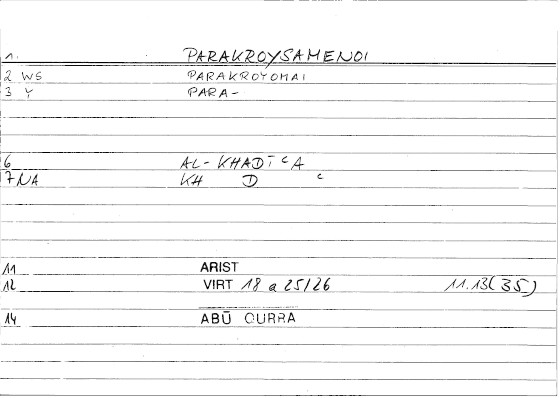 1. PARAKROYSAMENOI
2 WS PARAKROYOMAI
3 Y PARA-
6 AL-KHADĪʿA
7 NA KH D ʿ
11 ARIST
12 VIRT 18 a 25/26 11.13(35)
14 ABŪ QURRA